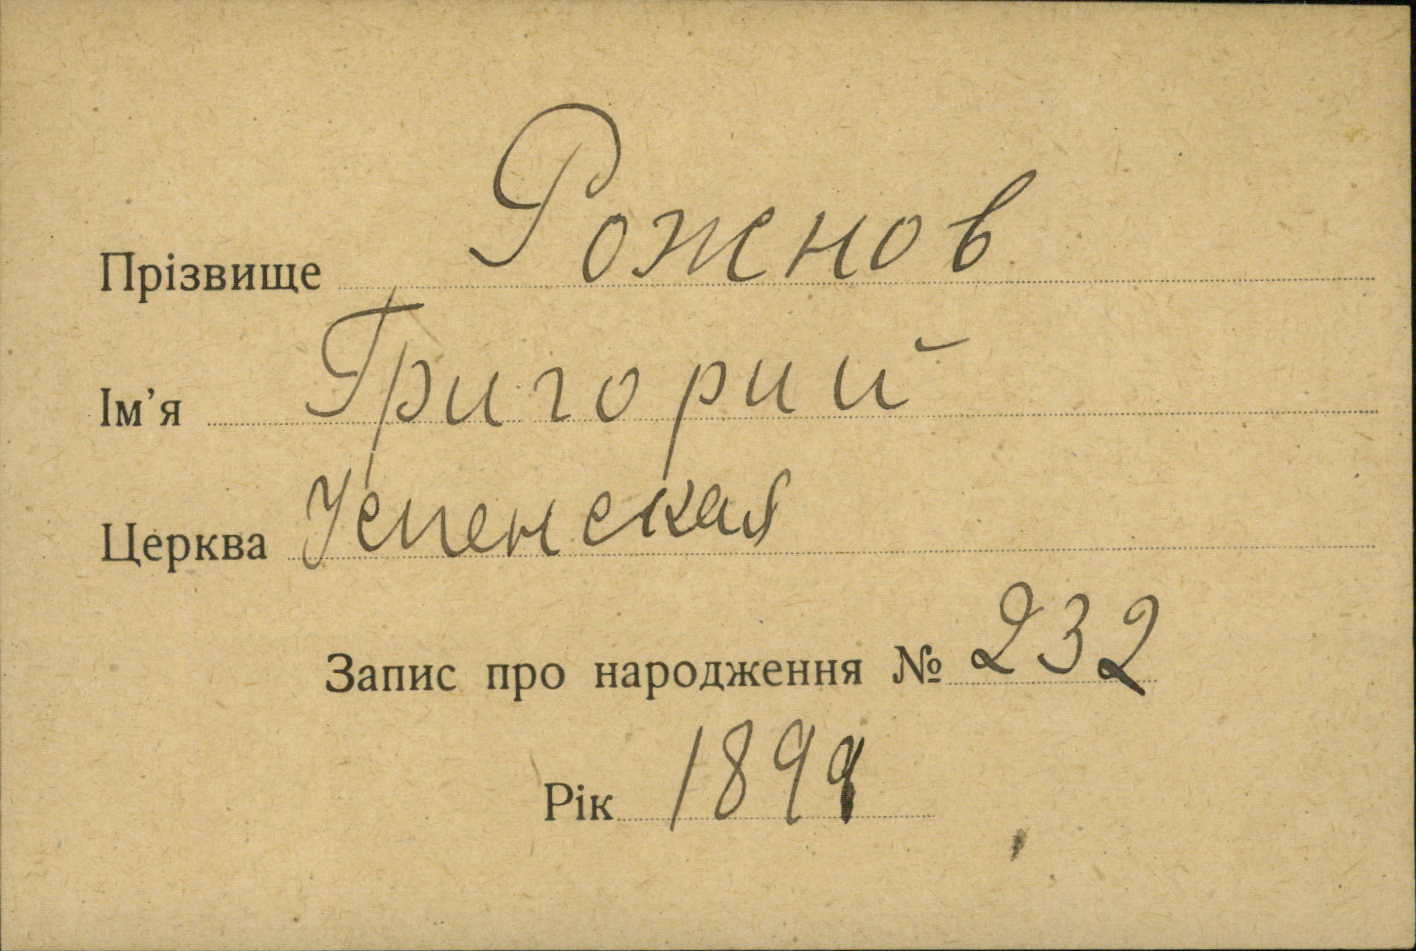 Прізвище Рожнов
Ім'я Григорий
Церква Успенская
Запис про народження № 232
Рік 1899